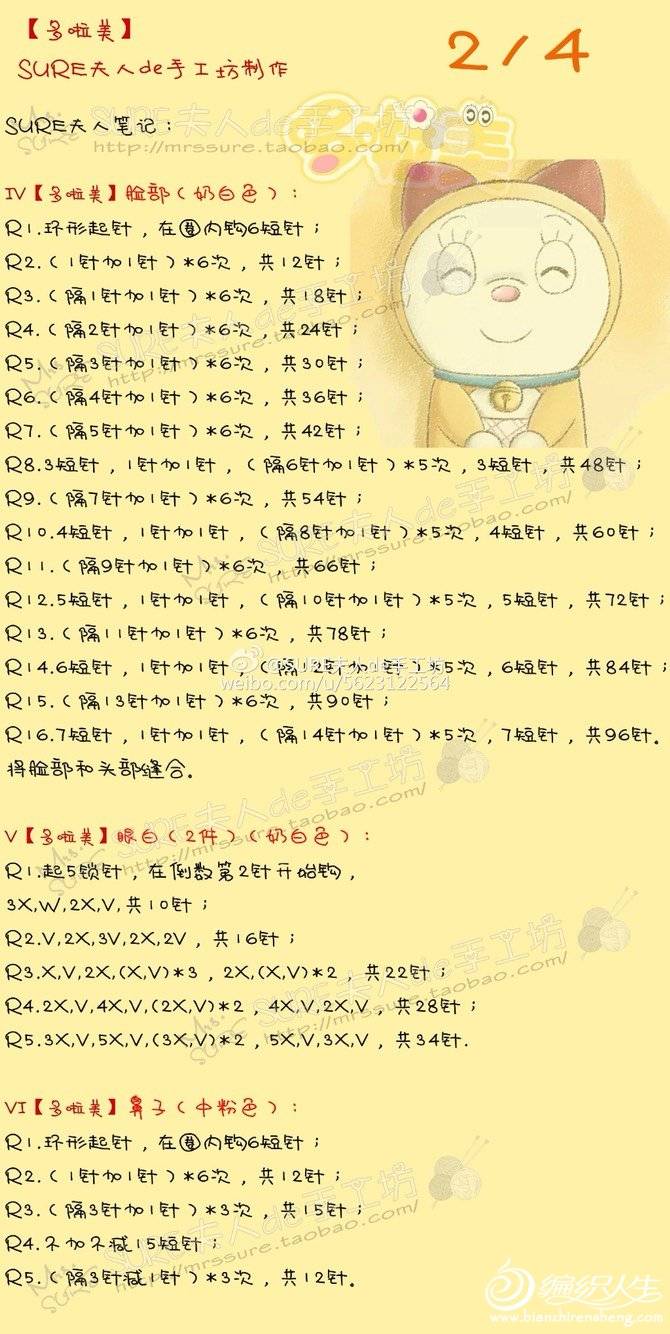 【多啦美】
2/4
SURE夫人de手工坊制作
SURE夫人笔记：
多啦美
IV【多啦美】脸部（奶白色）：
R1.环形起针，在圈内钩6短针；
R2.（1针加1针）*6次，共12针；
R3.（隔1针加1针）*6次，共18针；
R4.（隔2针加1针）*6次，共24针；
R5.（隔3针加1针）*6次，共30针；
R6.（隔4针加1针）*6次，共36针；
R7.（隔5针加1针）*6次，共42针；
R8.3短针，1针加1针，（隔6针加1针）*5次，3短针，共48针；
R9.（隔7针加1针）*6次，共54针；
R10.4短针，1针加1针，（隔8针加1针）*5次，4短针，共60针；
R11.（隔9针加1针）*6次，共66针；
R12.5短针，1针加1针，（隔10针加1针）*5次，5短针，共72针；
R13.（隔11针加1针）*6次，共78针；
R14.6短针，1针加1针，（隔12针加1针）*5次，6短针，共84针；
@SURE夫人de手工坊
weibo.com/u/5623122564
R15.（隔13针加1针）*6次，共90针；
R16.7短针，1针加1针，（隔14针加1针）*5次，7短针，共96针。
将脸部和头部缝合。
V【多啦美】眼白（2件）（奶白色）：
R1.起5锁针，在倒数第2针开始钩，
3X,W,2X,V,共10针；
R2.V,2X,3V,2X,2V，共16针；
R3.X,V,2X,(X,V)*3，2X,(X,V)*2，共22针；
R4.2X,V,4X,V,(2X,V)*2，4X,V,2X,V，共28针；
R5.3X,V,5X,V,(3X,V)*2，5X,V,3X,V，共34针.
VI【多啦美】鼻子（中粉色）：
R1.环形起针，在圈内钩6短针；
R2.（1针加1针）*6次，共12针；
R3.（隔3针加1针）*3次，共15针；
R4.不加不减15短针；
R5.（隔3针减1针）*3次，共12针。
Mrs. SURE SURE夫人de手工坊
http://mrssure.taobao.com/
编织人生
www.bianzhirensheng.com